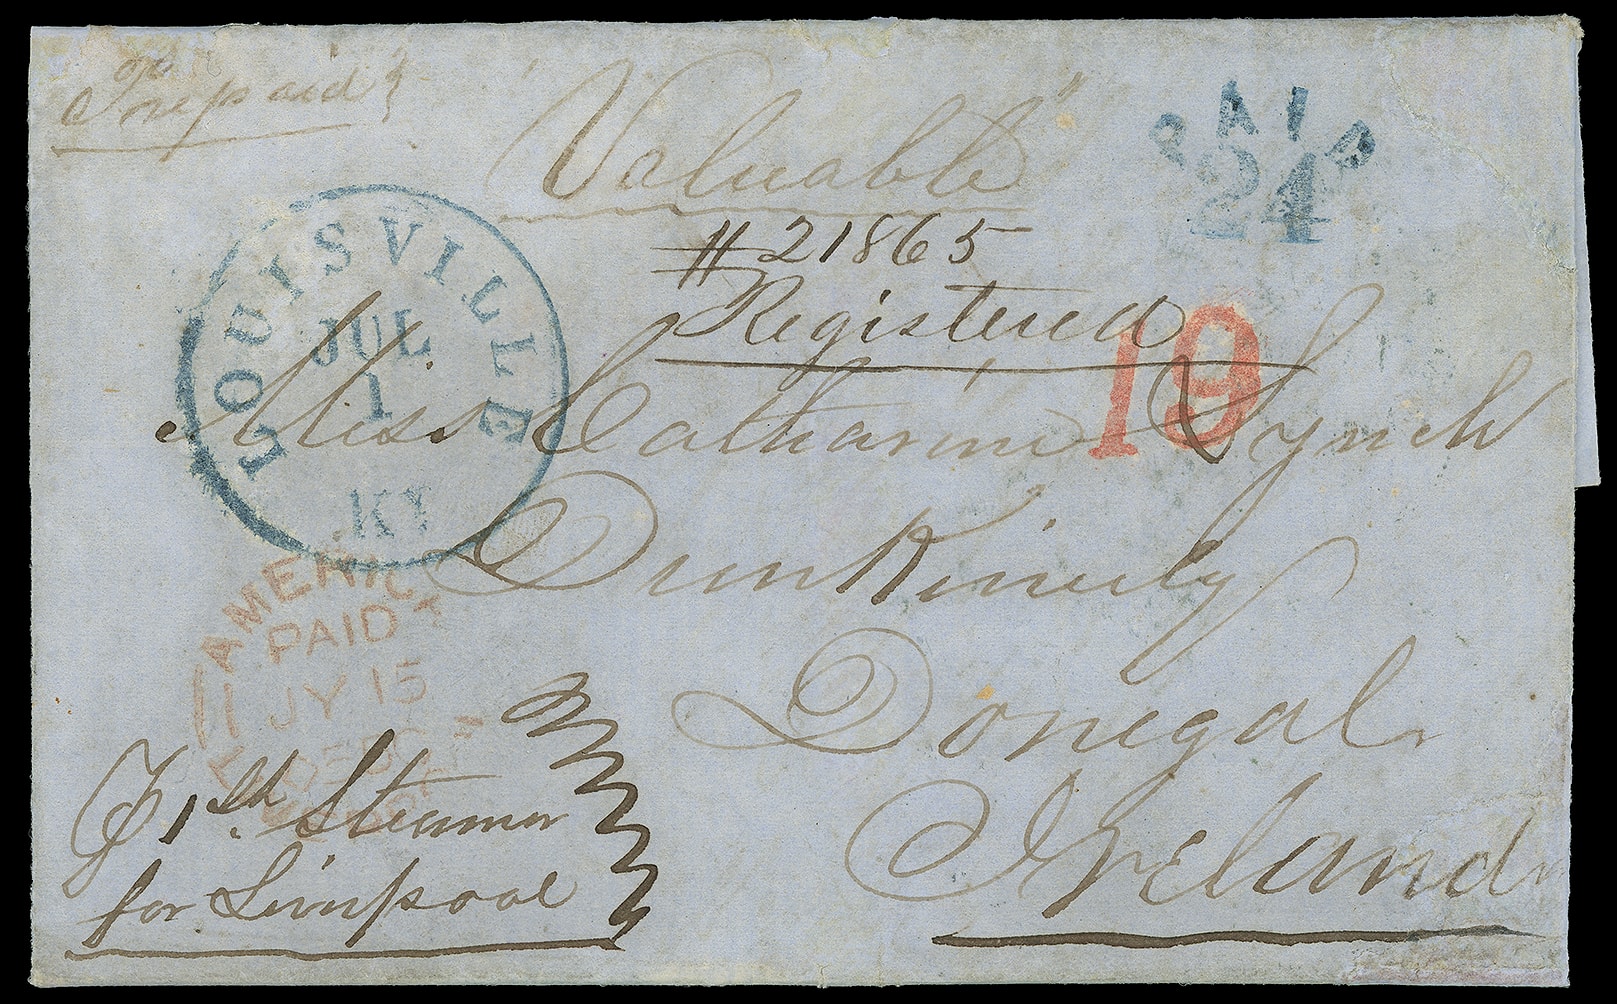 Prepaid
"Valuable"
PAID
24
#21865
Registered
19
LOUISVILLE
JUL
1
KY
Miss Catharine Lynch
Dunkinely
Donegal
Ireland
AMERIC
PAID
JY 15
1st Steamer
for Livrpool